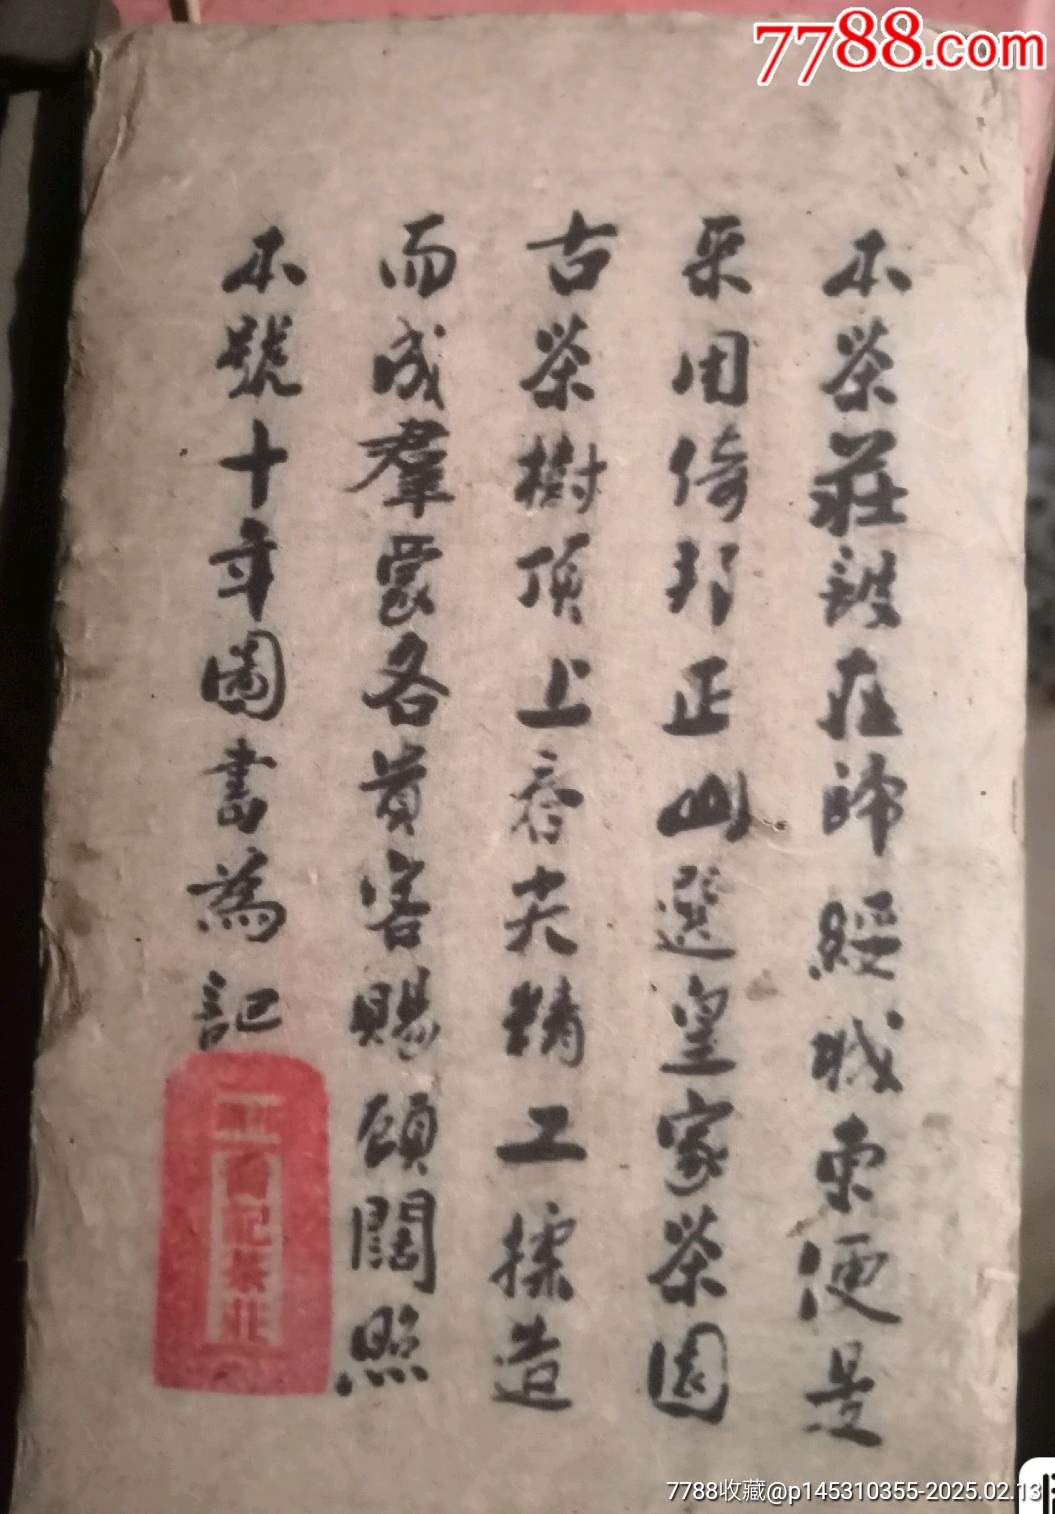 7788.com
本茶莊設在歸綏城東便是
采用倚邦正山選皇家茶園
古茶樹頂上春尖精工揉造
而成羣蒙各貴客賜顧闊照
本號十年圖書為記
記茶莊
7788收藏@p145310355-2025.02.13